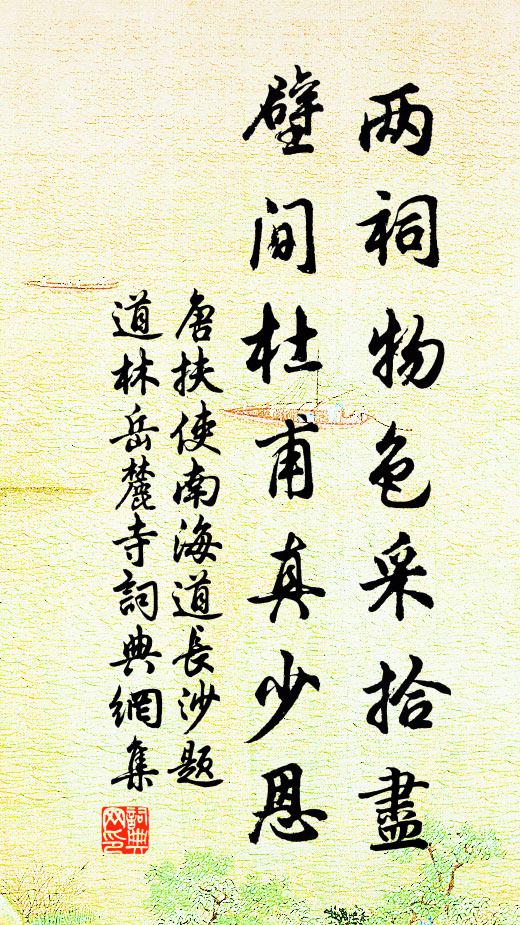 两祠物色采拾盡
壁间杜甫真少恩
唐扶使南海道長沙題
道林岳麓寺詞典網集
詞典
网印